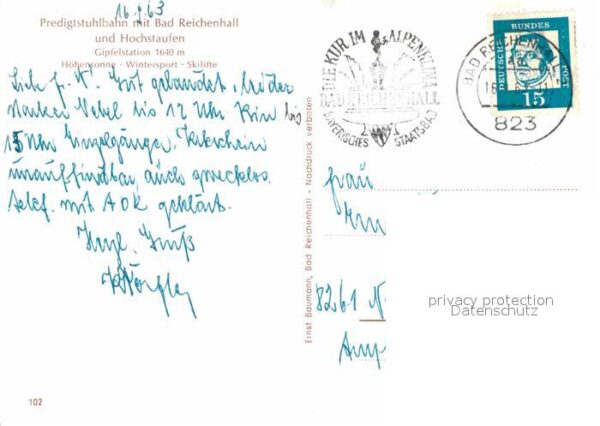 16.4.63
Predigtstuhlbahn mit Bad Reichenhall
und Hochstaufen
Gipfelstation 1640 m
Höhensonne · Wintersport · Skilifte
Liebe f. K! Gut gelandet,
starker Nebel bis 12 Uhr bis
15 Uhr Krkschein
unauffindbar, auch zwecklos
telef. mit AOK geklärt.
Hzgl. Gruß
DIE KUR IM ALPENKLIMA
BAD REICHENHALL
BAYERISCHES STAATSBAD
BAD REICHENHALL
823
DEUTSCHE BUNDESPOST
15
Frau
8261 N
Amp
Ernst Baumann, Bad Reichenhall - Nachdruck verboten
privacy protection
Datenschutz
102